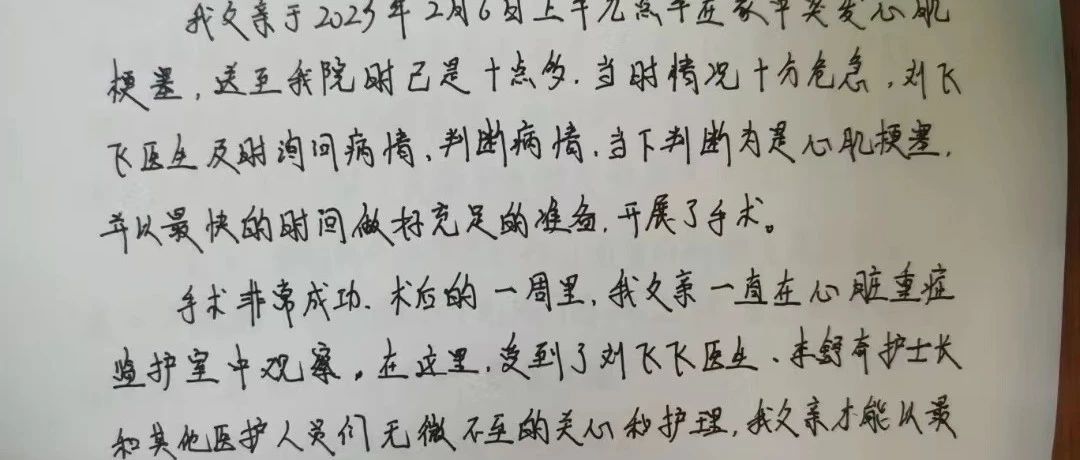 我父亲于2023年2月6日上午九点半在家中突发心肌
梗塞，送至我院时已是十点多.当时情况十分危急，刘飞
飞医生及时询问病情、判断病情、当下判断为是心肌梗塞，
并以最快的时间做好充足的准备，开展了手术。
手术非常成功、术后的一周里，我父亲一直在心脏重症
监护室中观察。在这里，受到了刘飞飞医生、舒奇护士长
和其他医护人员们无微不至的关心和护理，我父亲才能以最